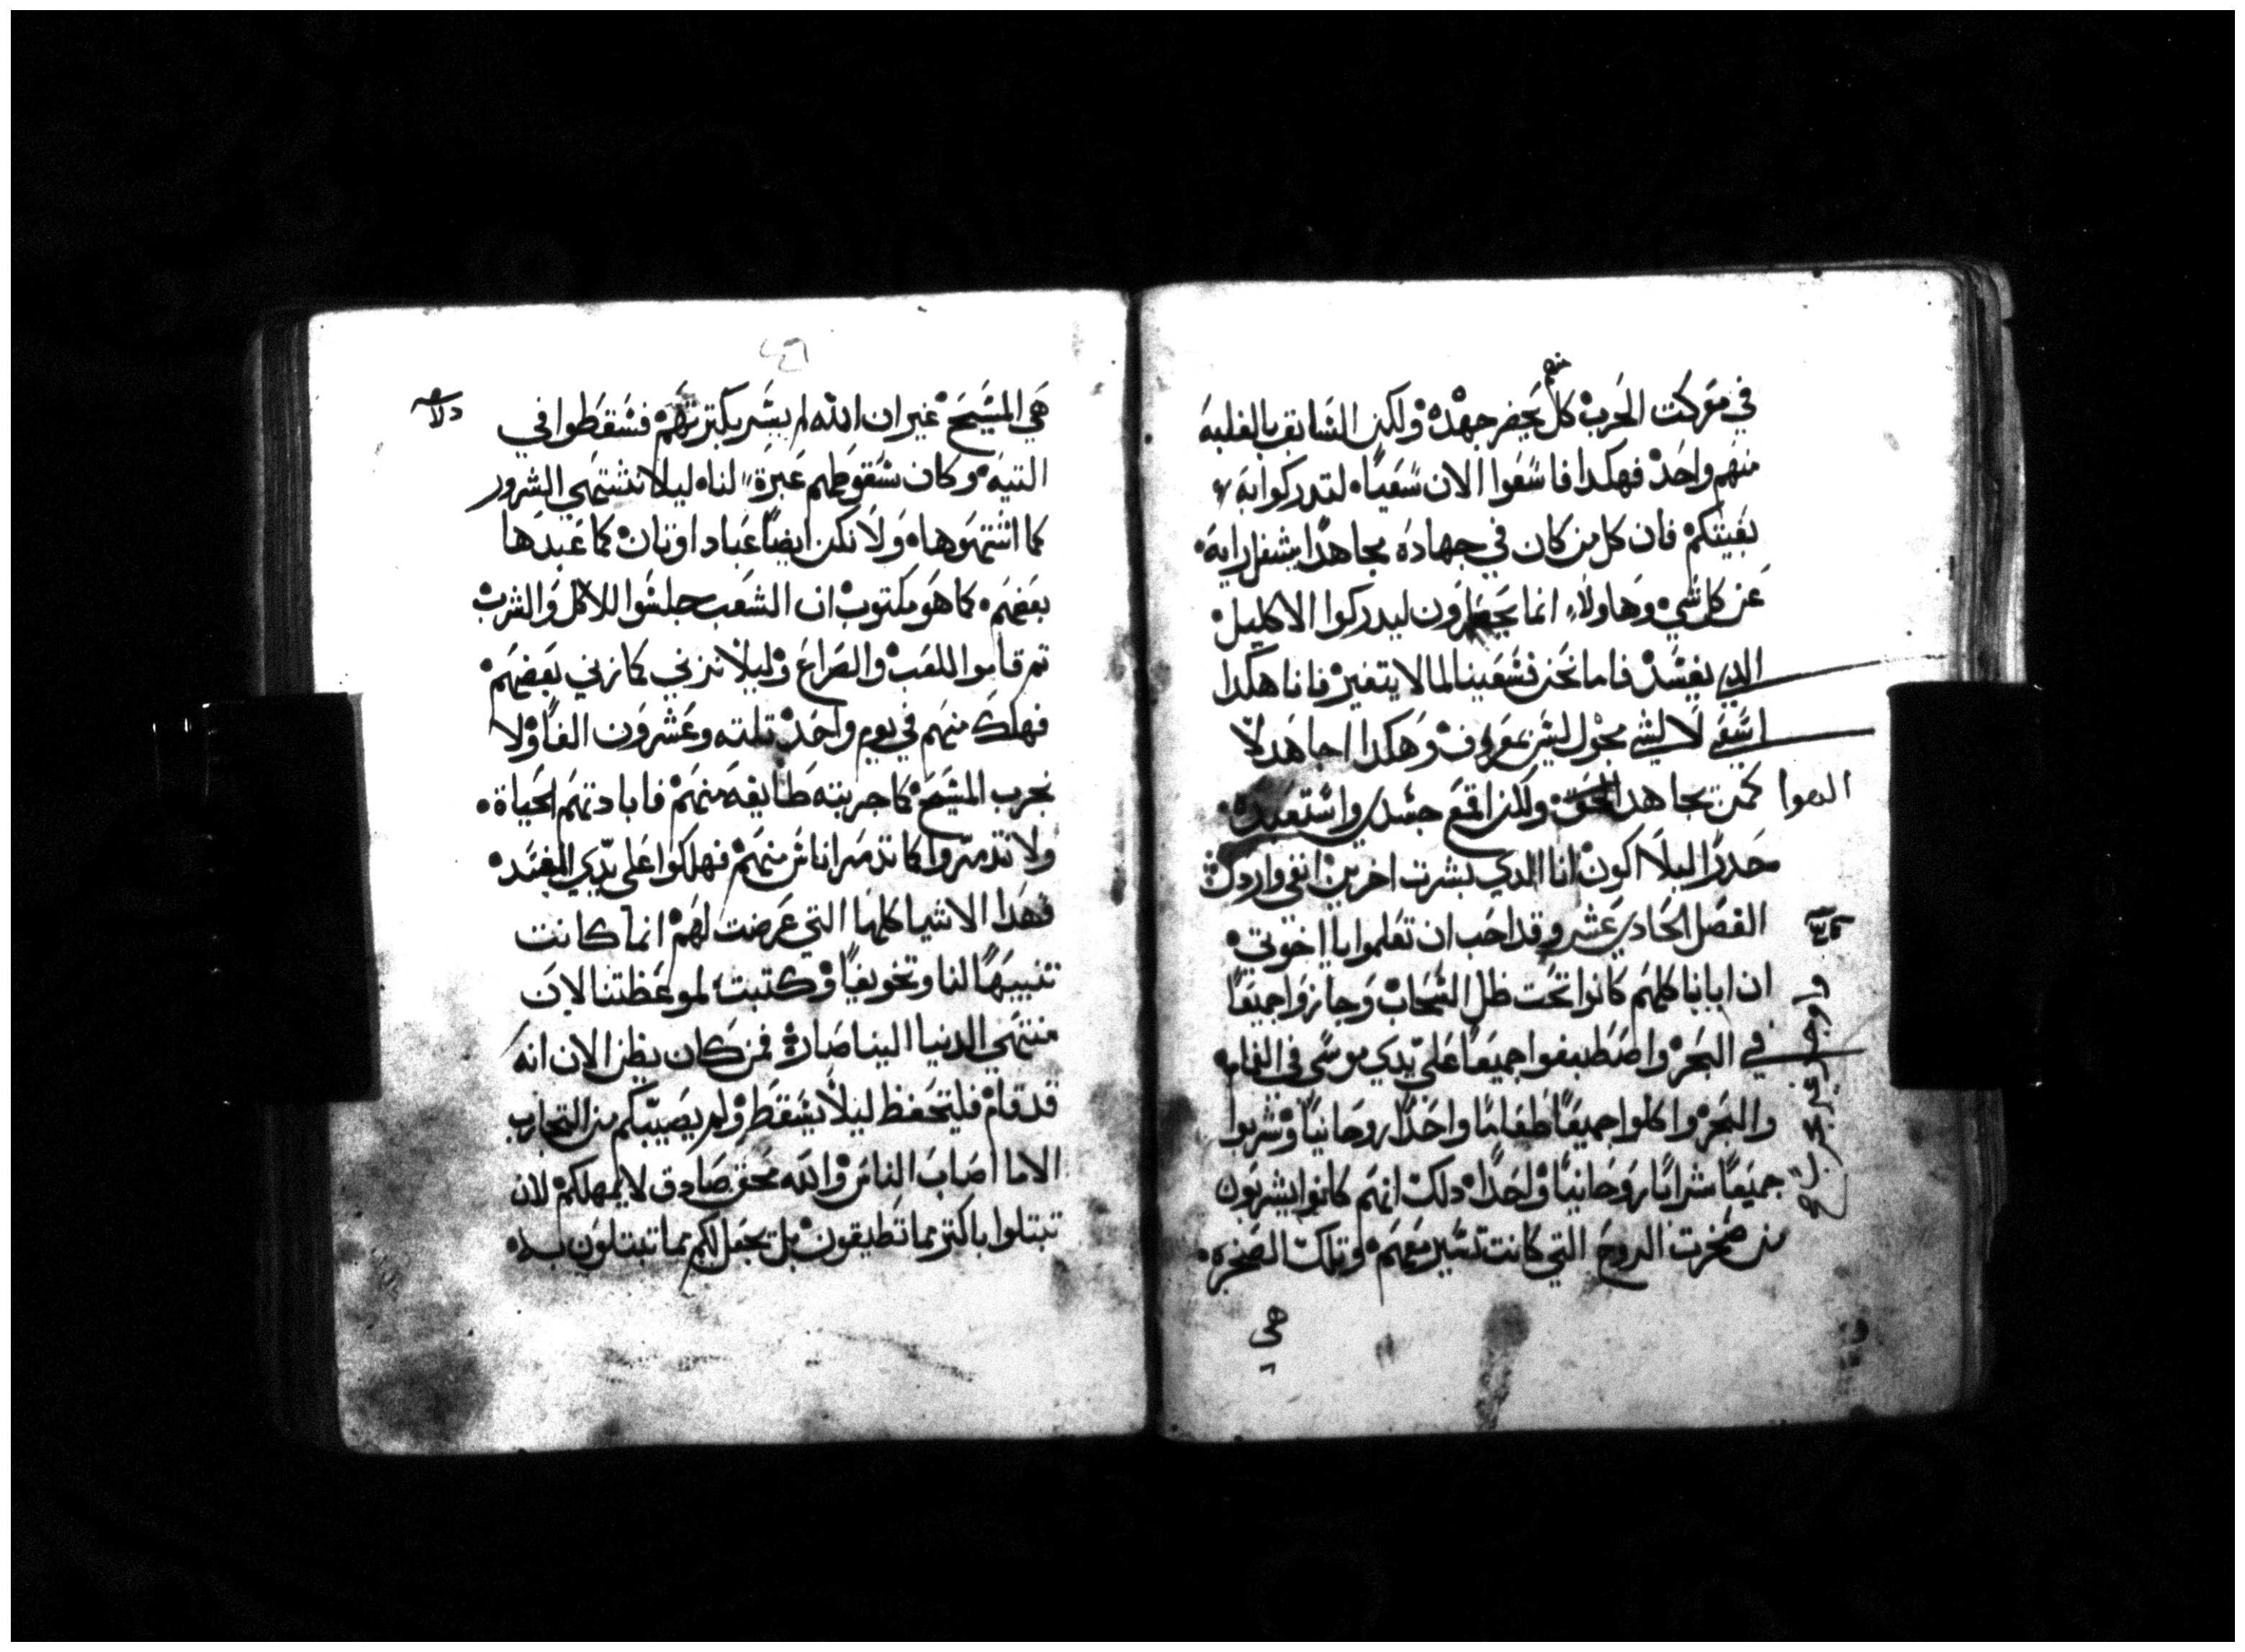 في معركت الحرب كل يحضر جهده ولكن السابق بالغلبه
منهم واحد فهكدا فاسعوا الان سعيا لتدركوا به
بغيتكم فان كل من كان في جهاده مجاهدا يشغل رايه
عن كل شي وهاولاء انما يجهدون ليدركوا الاكليل
الدي يفسد فاما نحن فسعينا لما لا يتغير فانا هكدا
اسعى لا لشي مجهول ليس بمعروف وهكدا اجاهد لا
الهوا كمن يجاهد ولكن اقمع جسدي واستعبده
حدرا ليلا اكون انا الدي بشرت اخرين انفى واردل
الفصل الحادي عشر وقد احب ان تعلموا يا اخوتي
ان ابانا كلهم كانوا تحت ظل السحاب وجازوا جميعا
في البحر واصطبغوا جميعا على يدي موسى في الغمام
والبحر واكلوا جميعا طعاما واحدا روحانيا وشربوا
جميعا شرابا روحانيا واحدا دلك انهم كانوا يشربون
من صخرت الروح التي كانت تسير معهم وتلك الصخره
هي
هي المسيح غير ان الله لم يسر بكترتهم فسقطوا في
التيه وكان سقوطهم عبرة لنا ليلا نشتهي الشرور
كما اشتهوها ولا نكن ايضا عباد اوتان كما عبدها
بعضهم كما هو مكتوب ان الشعب جلسوا للاكل والشرب
تم قاموا للعب والصراع وليلا نزني كما زني بعضهم
فهلك منهم في يوم واحد تلته وعشرون الفا ولا
نجرب المسيح كما جربته طايفه منهم فابادتهم الحياة
ولا تدمروا كما تدمر اناس منهم فهلكوا على يدي المفسد
فهدا الاشيا كلها التي عرضت لهم انما كانت
تنبيها لنا وتخويفا وكتبت لموعظتنا لان
منتهى الدنيا الينا صارة فمن كان يظن الان انه
قد قام فليتحفظ ليلا يسقط ولم يصيبكم من التجارب
الا ما اصاب الناس والله محق صادق لا يمهلكم لان
تبتلوا باكتر مما تطيقون بل يجعل لكم مما تبتلون به